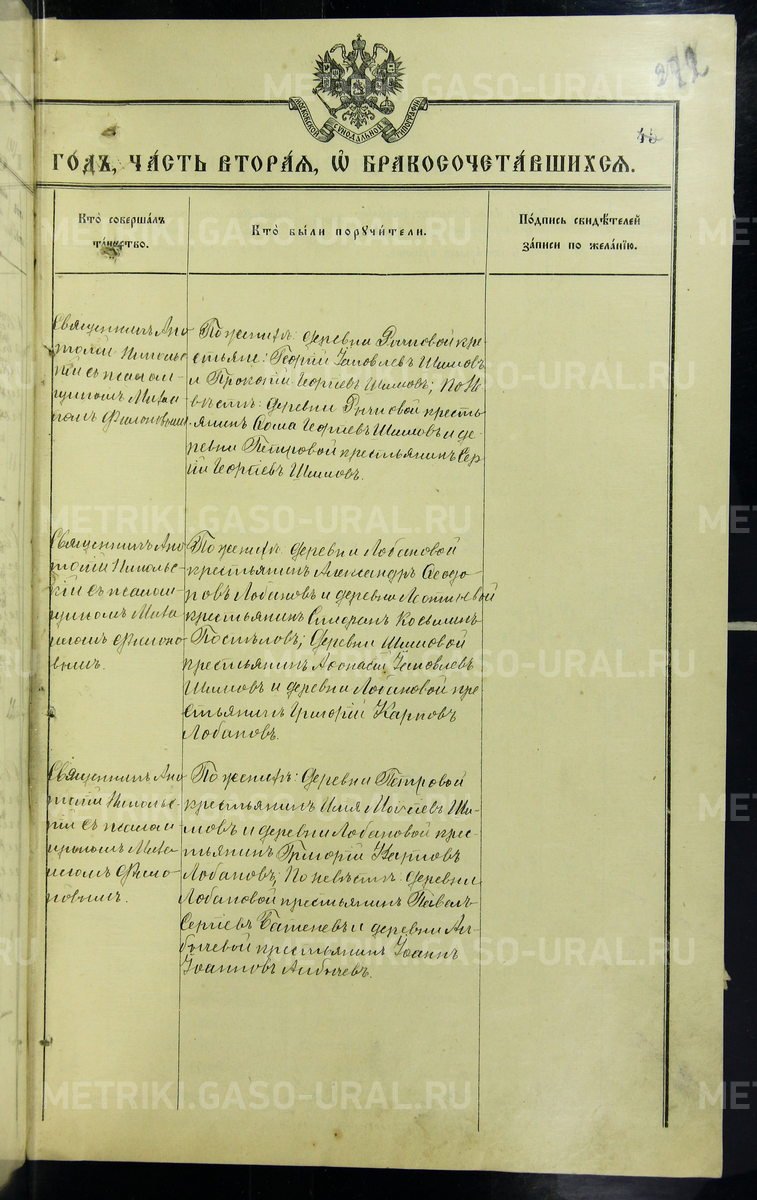 272
45
МОСКОВСКОЙ СУНОДАЛЬНОЙ ТИПОГРАФІИ
ГО́ДЪ, ЧА́СТЬ ВТОРА́Я, Ѡ҆ БРАКОСОЧЕТА́ВШИХСЯ.
Кто̀ соверша́лъ
та́инство.
Кто̀ бы́ли порꙋчи́тели.
По́дпись свидѣ́телей
за́писи по жела́нїю.
Священникъ Ана
толій Николь
скій съ псалом
щикомъ Миха
иломъ Филоновымъ
По женихѣ: деревни кре
стьяне: Георгій Яковлевъ Шиловъ
и Прокопій Георгіевъ Шиловъ; По не
вѣстѣ: деревни кресть
янинъ Ѳома Георгіевъ Шиловъ и де
ревни Петровой крестьянинъ Сер
гій Георгіевъ Шиловъ.
Священникъ Ана
толій Николь
скій съ псалом
щикомъ Миха
иломъ Филоно
вымъ.
По женихѣ: деревни Лобановой
крестьянинъ Александръ Ѳеодо
ровъ Лобановъ и деревни Леонтьевой
крестьянинъ Стефанъ Косьминъ
Поспѣловъ; деревни Шиловой
крестьянинъ Аѳонасій Яковлевъ
Шиловъ и деревни Лобановой кре
стьянинъ Григорій Карповъ
Лобановъ.
Священникъ Ана
толій Николь
скій съ псалом
щикомъ Миха
иломъ Фило
новымъ.
По женихѣ: деревни Петровой
крестьянинъ Илія Моисеевъ Ши
ловъ и деревни Лобановой крес
тьянинъ Григорій Карповъ
Лобановъ; По невѣстѣ: деревни
Лобановой крестьянинъ Павелъ
Сергіевъ и деревни Ал
бычевой крестьянинъ Іоаннъ
Іоанновъ Албычевъ.
METRIKI.GASO-URAL.RU
METRIKI.GASO-URAL.RU
METRIKI.GASO-URAL.RU
METRIKI.GASO-URAL.RU